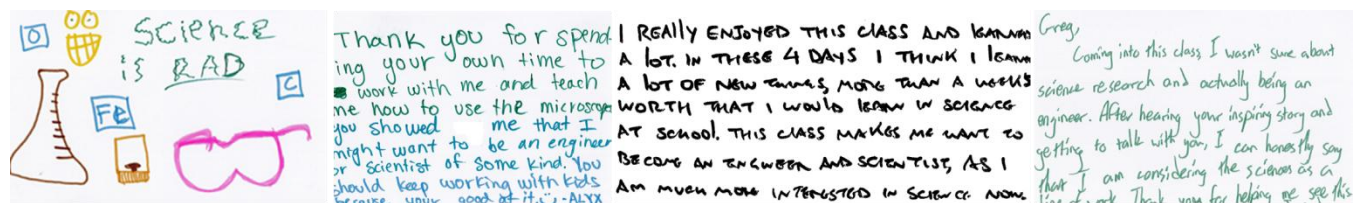 SCIENCE
is RAD
O
C
Fe
Thank you for spend
ing your own time to
work with me and teach
me how to use the microscope
you showed me that I
might want to be an engineer
or scientist of some kind. You
should keep working with kids
because your good at it. -ALYX
I REALLY ENJOYED THIS CLASS AND LEARNED
A LOT. IN THESE 4 DAYS I THINK I LEARN
A LOT OF NEW THINGS, MORE THAN A WEEKS
WORTH THAT I WOULD LEARN IN SCIENCE
AT SCHOOL. THIS CLASS MAKES ME WANT TO
BECOME AN ENGINEER AND SCIENTIST, AS I
AM MUCH MORE INTERESTED IN SCIENCE NOW.
Greg,
Coming into this class, I wasn't sure about
science research and actually being an
engineer. After hearing your inspiring story and
getting to talk with you, I can honestly say
that I am considering the sciences as a
line of work. Thank you for helping me see this